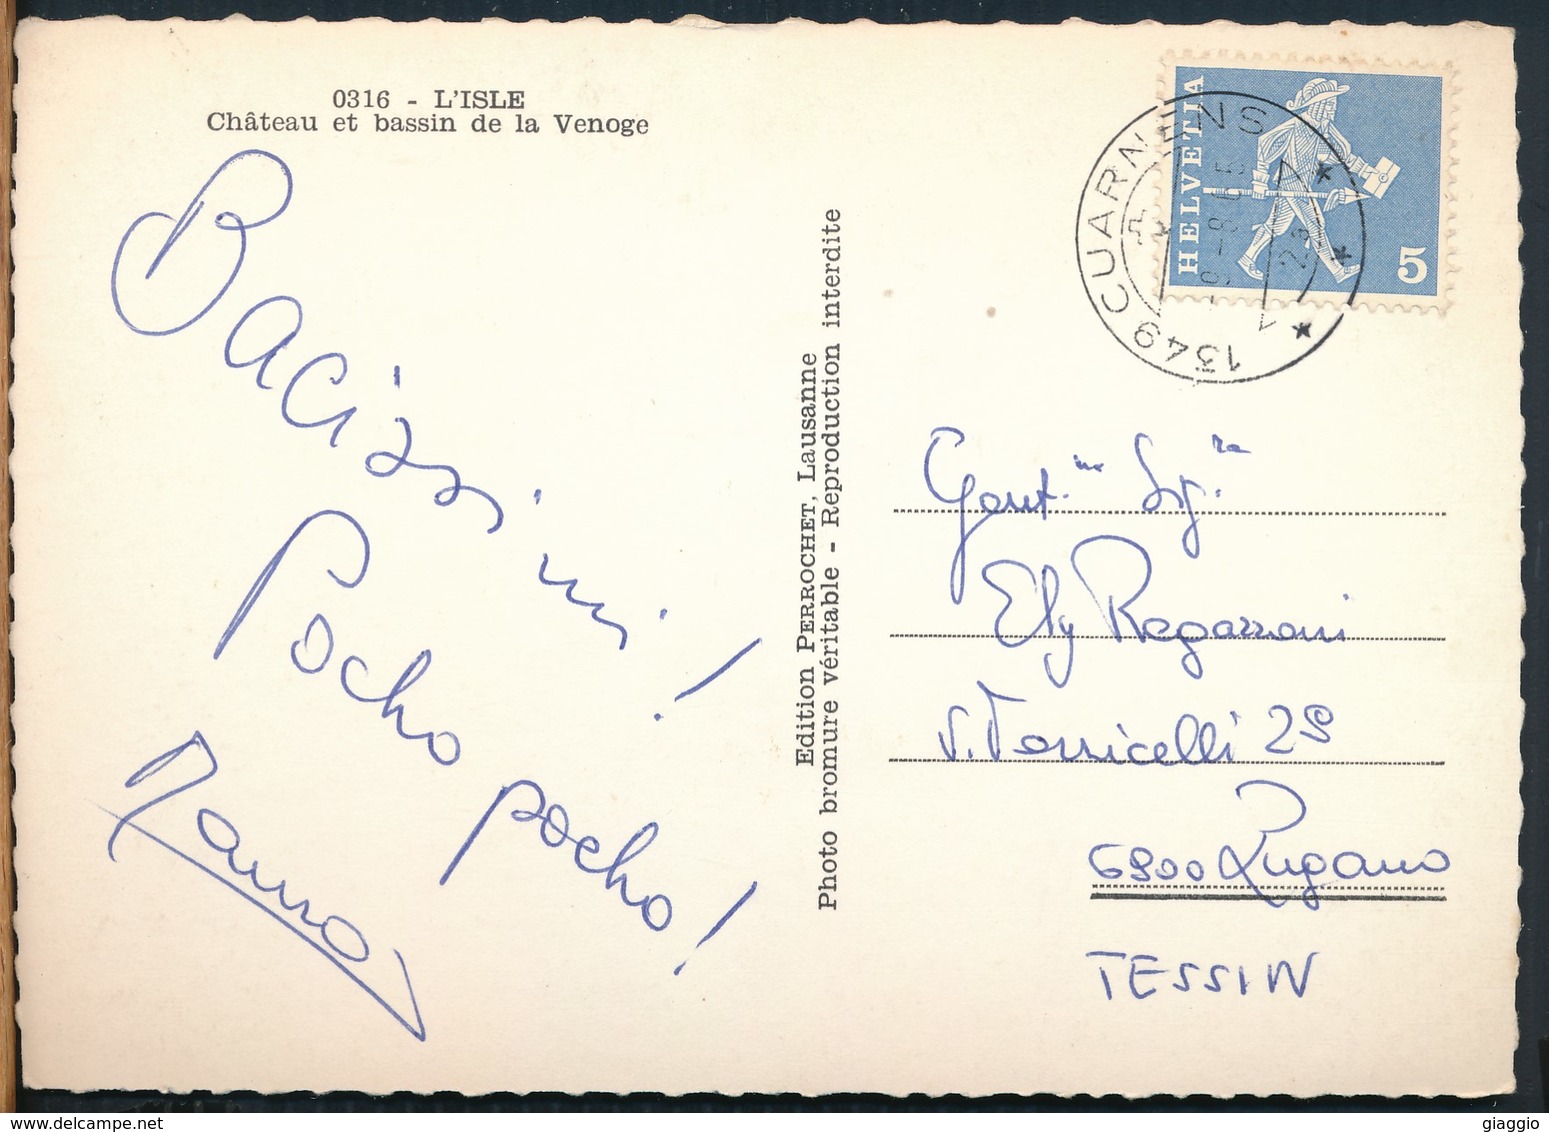 0316 - L'ISLE
Château et bassin de la Venoge
Bacissimi!
Pocho pocho!
Mauro
Edition PERROCHET, Lausanne
Photo bromure véritable - Reproduction interdite
HELVETIA
5
1349 CUARNENS
23
Gent.ma Sig.ra
Ely Ragazzoni
V. Torricelli 29
6900 Lugano
TESSIN
delcampe.net
giaggio